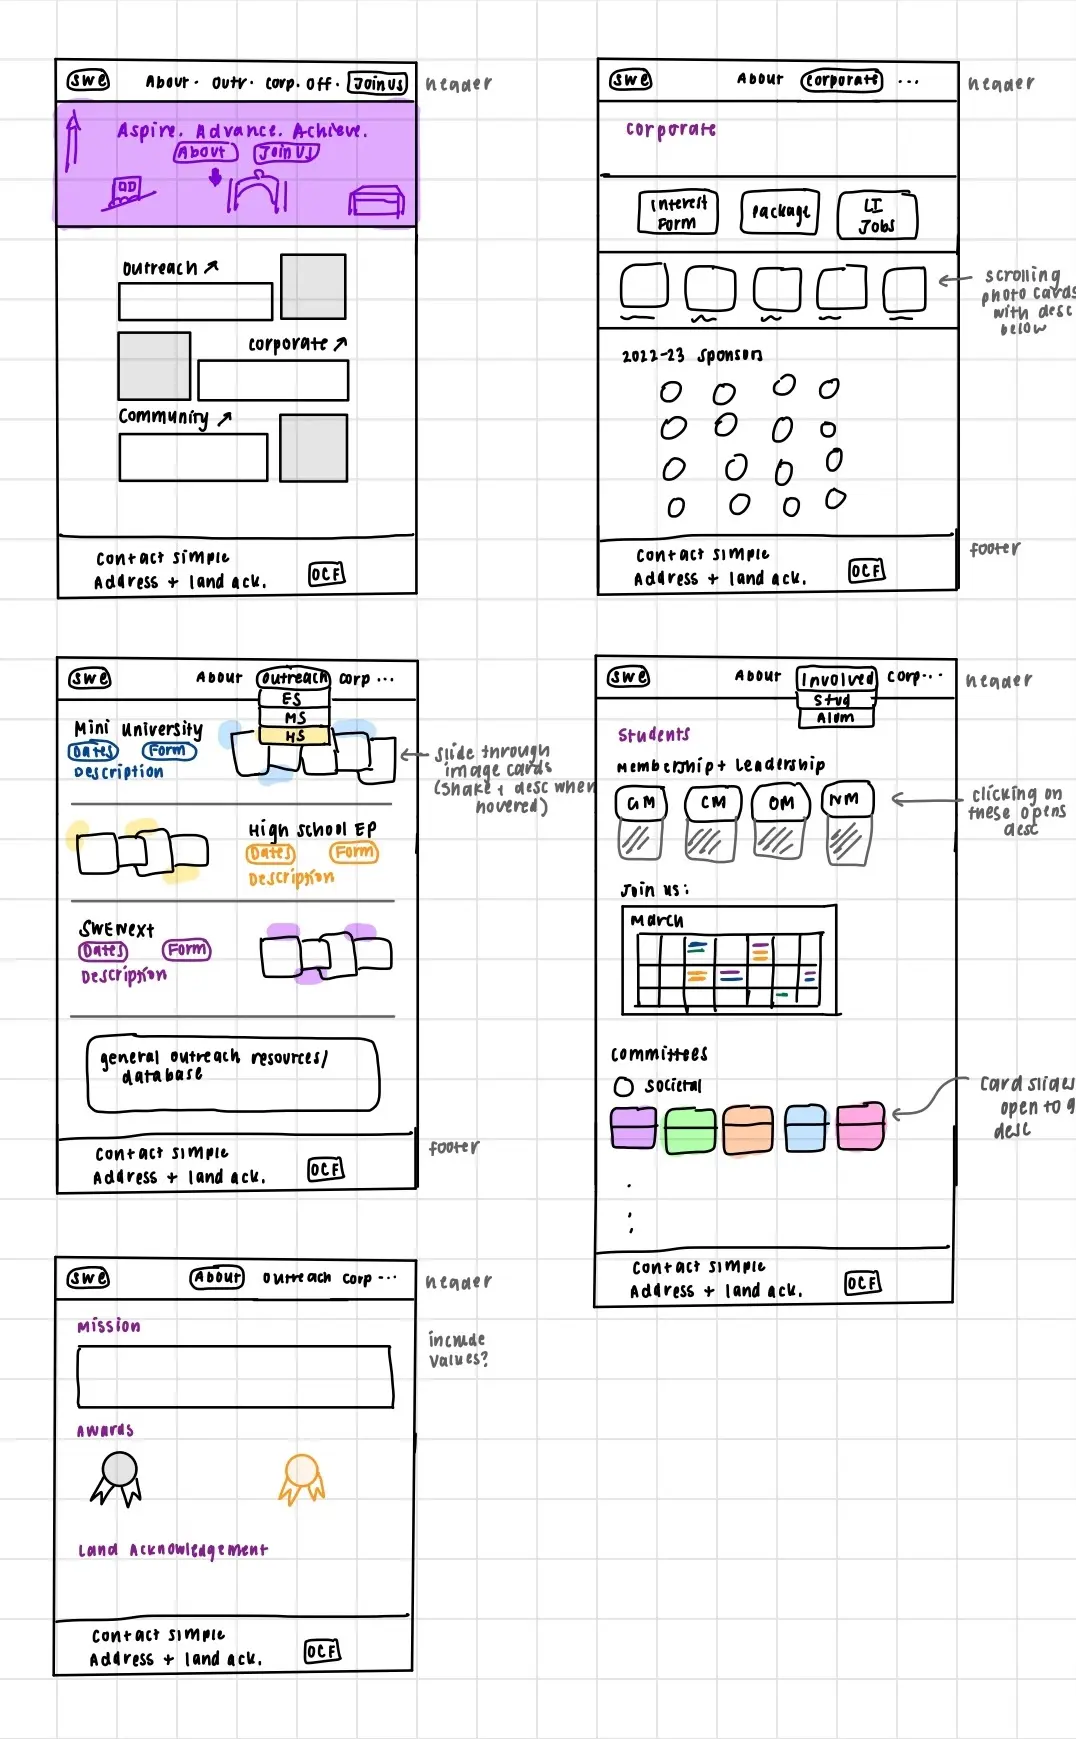 SWE About. Outr. Corp. Off. Join Us
header
Aspire. Advance. Achieve.
About Join Us
Outreach ↗
Corporate ↗
Community ↗
Contact simple
Address + land ack. OCF
SWE About Corporate ...
header
Corporate
Interest Form
Package
LI Jobs
scrolling
photo cards
with desc
below
2022-23 Sponsors
Contact simple
Address + land ack. OCF
footer
SWE About Outreach Corp ...
ES
MS
HS
Mini University
Dates Form
Description
slide through
image cards
(shake + desc when
hovered)
High School EP
Dates Form
Description
SWENext
Dates Form
Description
general outreach resources/
database
Contact simple
Address + land ack. OCF
footer
SWE About Involved Corp...
header
Stud
Alum
Students
Membership + Leadership
GM CM OM NM
clicking on
these opens
desc
Join us:
March
Committees
Societal
Card slides
open to g
desc
Contact simple
Address + land ack. OCF
SWE About Outreach Corp ...
header
Mission
include
values?
Awards
Land Acknowledgement
Contact simple
Address + land ack. OCF